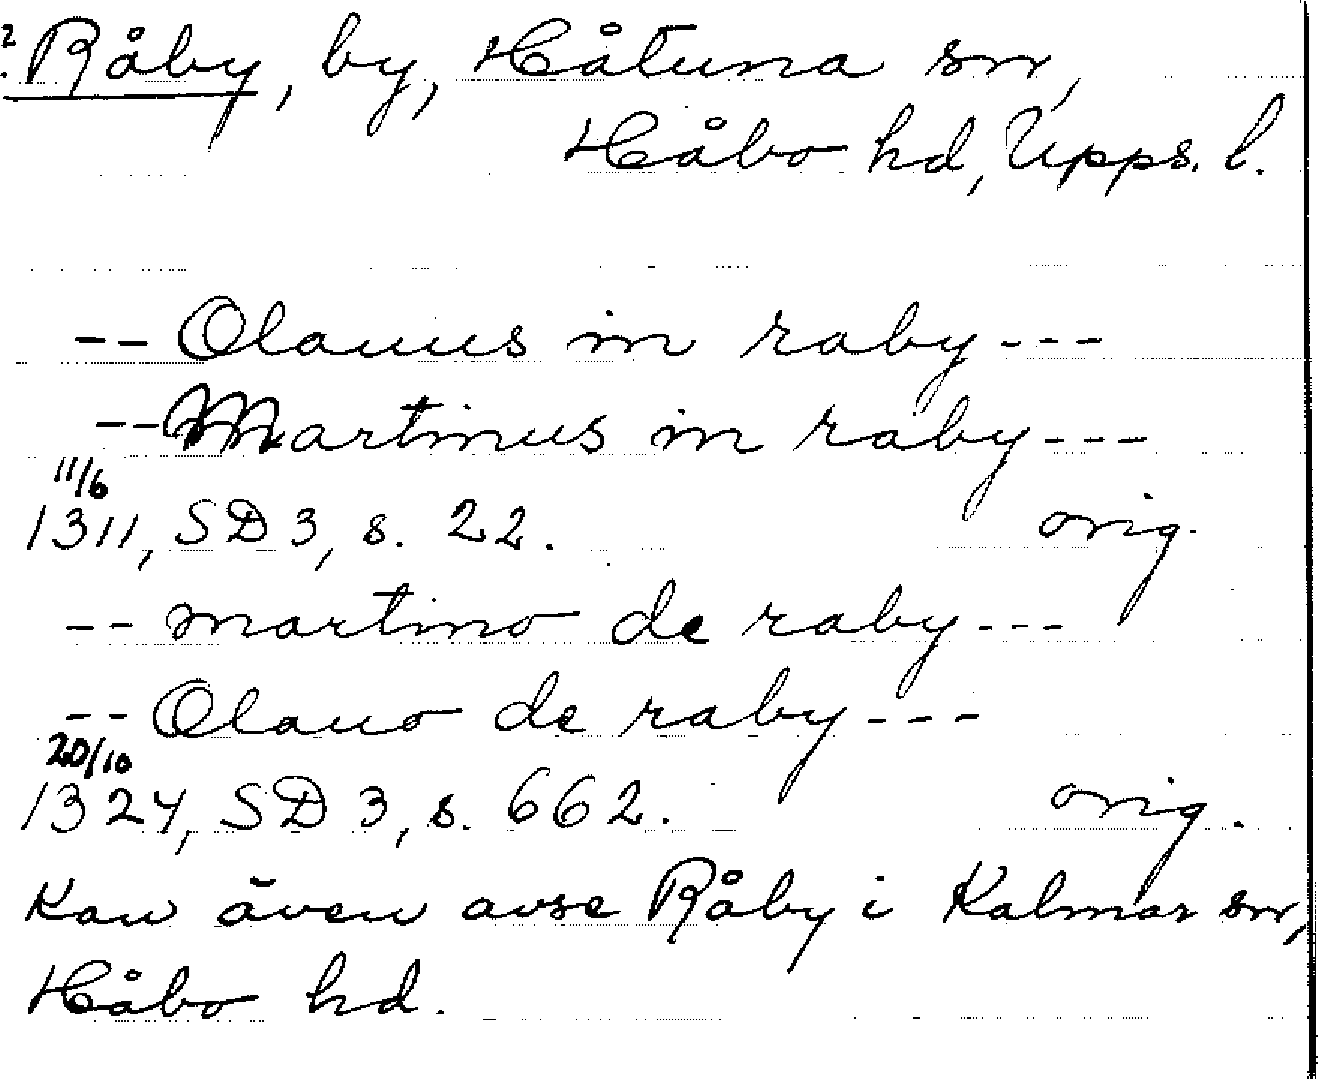 ? Råby, by, Håtuna sn,
Håbo hd, Upps. l.
-- Olauus in raby ---
-- Martinus in raby ---
11/6
1311, SD 3, s. 22. orig.
-- martino de raby ---
-- Olauo de raby ---
20/10
1324, SD 3, s. 662. orig.
Kan även avse Råby i Kalmar sn,
Håbo hd.